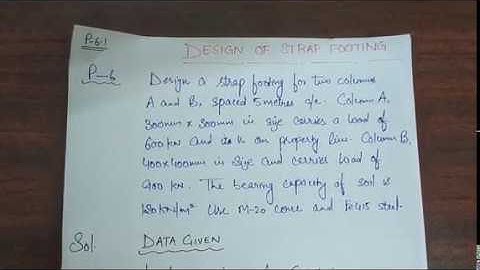 P-6.1
DESIGN OF STRAP FOOTING
P-6 Design a strap footing for two columns
A and B, spaced 5 metres c/c. Column A,
300mm x 300mm in size carries a load of
600 kN and is on property line. Column B,
400x400mm in size and carries load of
900 kN. The bearing capacity of soil is
kN/m² Use M-20 conc and Fe415 steel.
Sol. DATA GIVEN